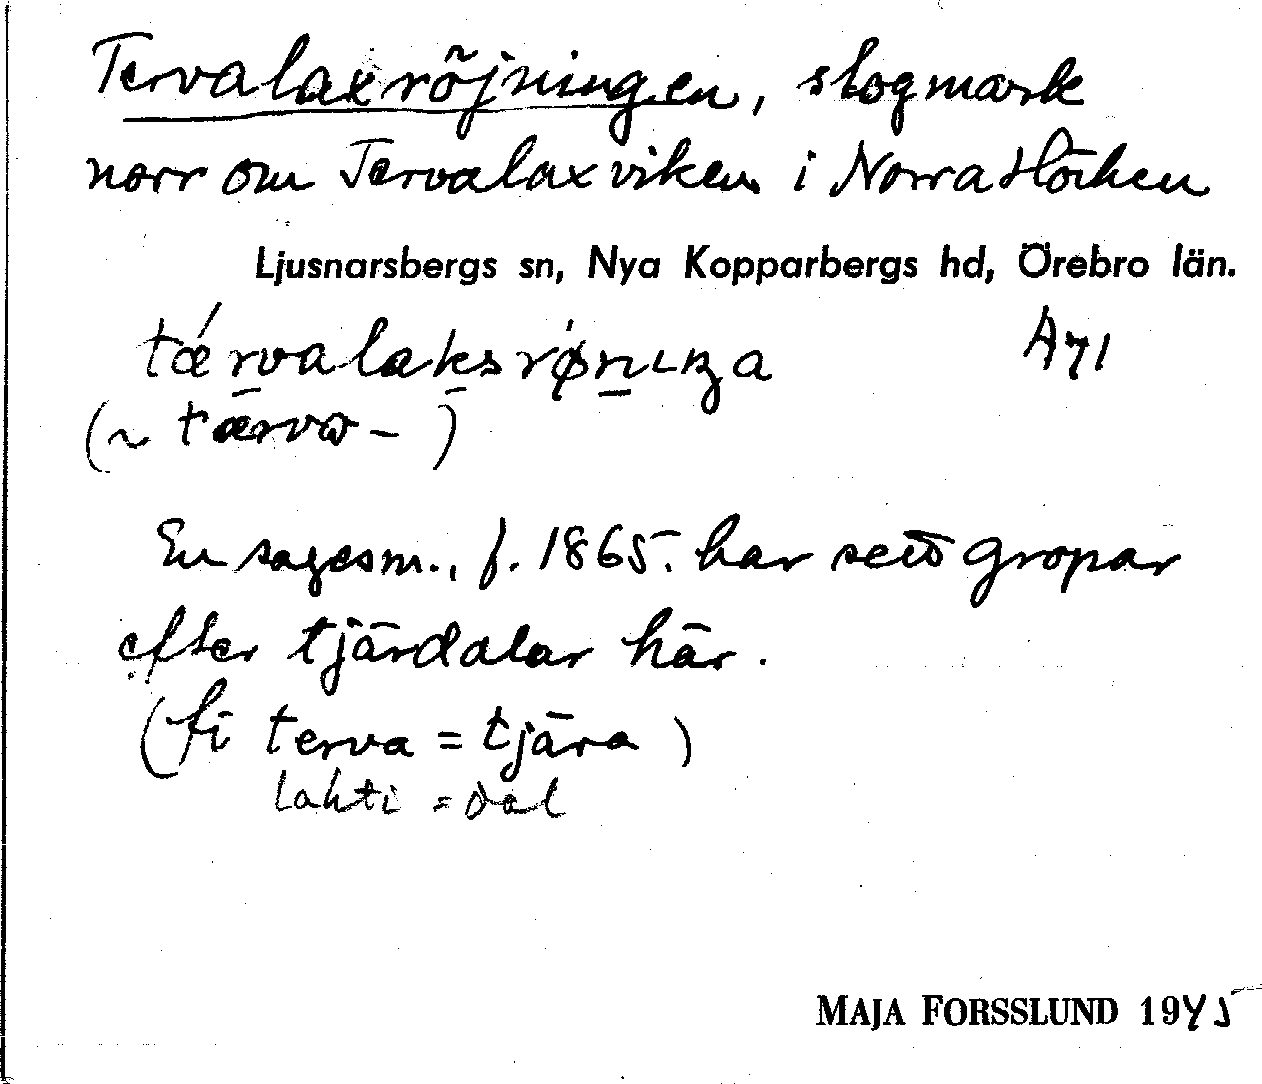 Tervalaxröjningen, slogmark
norr om Tervalaxviken i Norra Hörken
Ljusnarsbergs sn, Nya Kopparbergs hd, Örebro län.
tǽrvalaksrǿnıŋa A71
(~ tærvα-)
En sagesm., f. 1865. har sett gropar
efter tjärdalar här.
(fi terva = tjära)
lahti = dal
MAJA FORSSLUND 1945